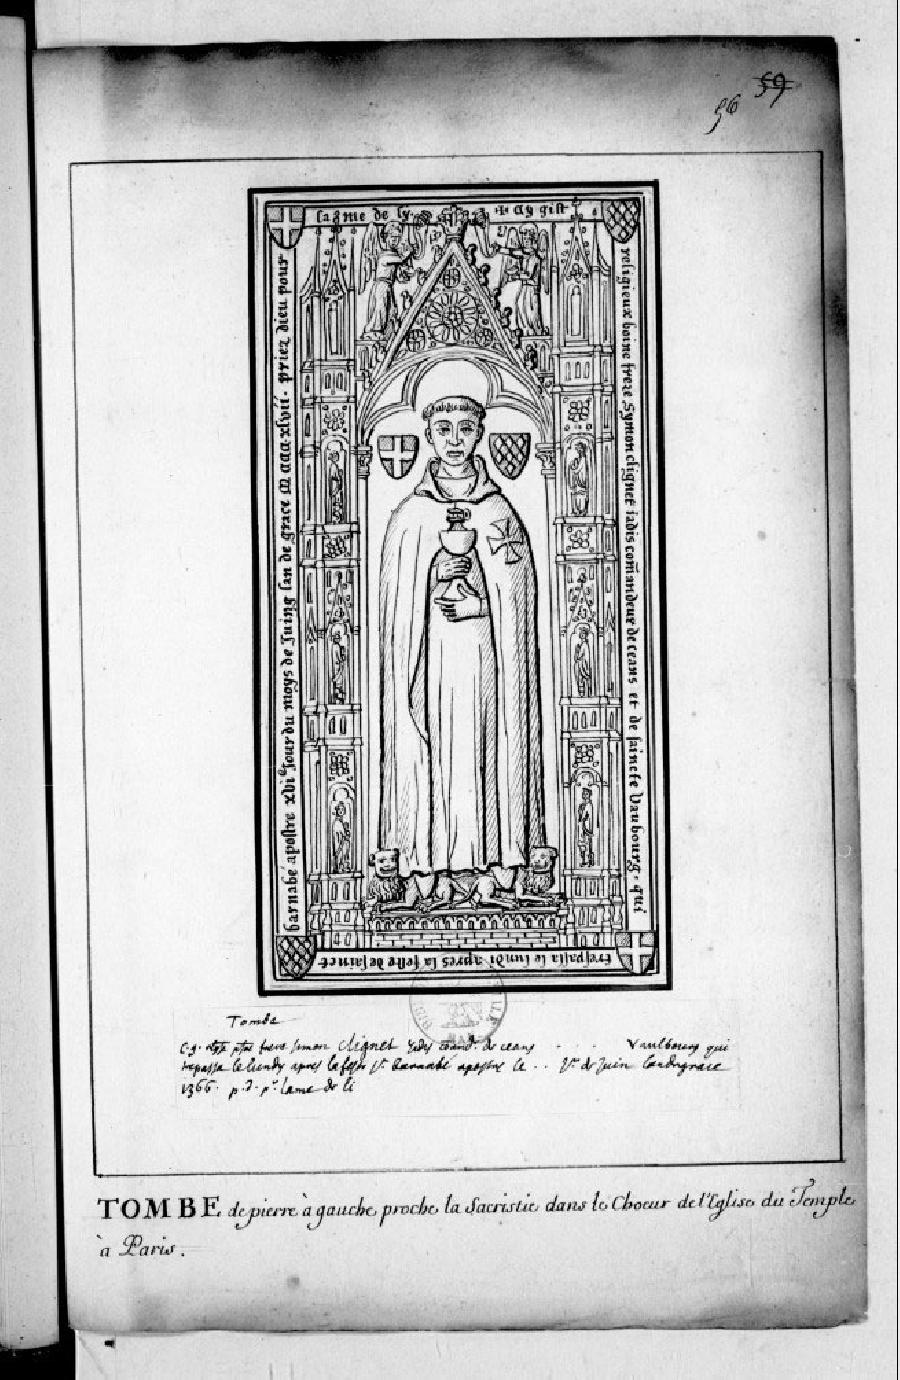 59
96
✠ Cy gist
religieux home frere Symon clignet iadis com̄andeur de ceans et de saincte Vaubourg. qui
trespassa le lundi apres la feste de sainct
barnabé apostre xvi.e Jour du moys de Juing lan de grace M ccc.xlvii. priez dieu pour
lame de ly.
Tombe
c.g. frere simon clignet Jadis comand.r de ceans . . . . Vaulbourg qui
trepassa le lundy apres la feste s.t Barnabé apostre le . . V.e de Juin lan de grace
1366. p.d.p.r lame de li
TOMBE de pierre à gauche proche la Sacristie dans le Choeur de l'Eglise du Temple
à Paris.